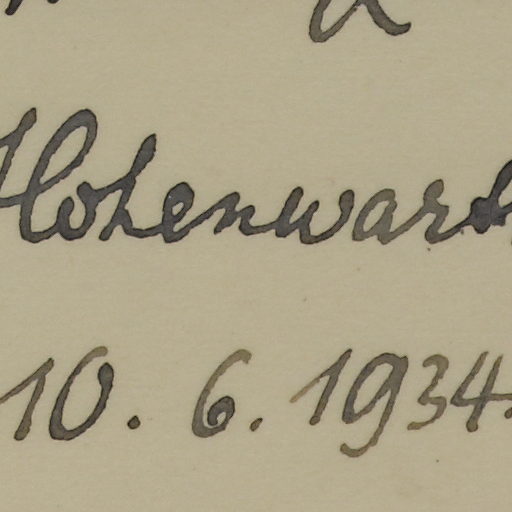 Hohenwart
10. 6. 1934.